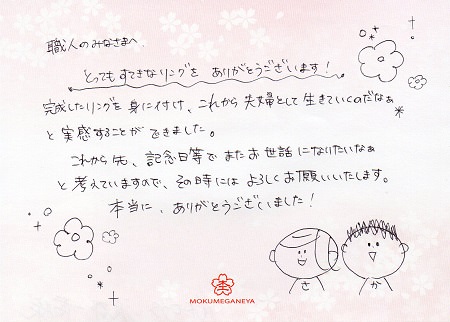 職人のみなさまへ
とってもすてきなリングを ありがとうございます！
完成したリングを身に付け、これから夫婦として生きていくのだなぁ
と実感することができました。
これから先、記念日等でまたお世話になりたいなぁ
と考えていますので、その時にはよろしくお願いいたします。
本当に、ありがとうございました！
さ
か
MOKUMEGANEYA